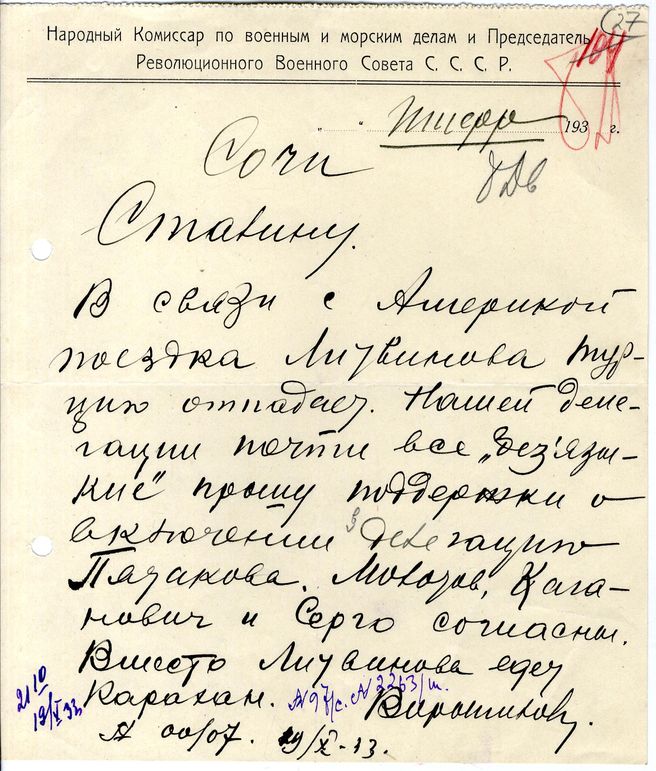 27
104
Народный Комиссар по военным и морским делам и Председатель
Революционного Военного Совета С. С. С. Р.
" " Шифр 193 г.
Сочи
Сталину.
В связи с Америкой
поездка Литвинова Тур-
цию отпадает. Нашей деле-
гации почти все „без'язы-
кие" прошу поддержки о
включении в делегацию
Пятакова. Молотов, Кага-
нович и Серго согласны.
Вместо Литвинова едет
Карахан. Ворошилов.
21 10
19/X 33
N 97/с. N 2263/ш.
N 00/07. 19/X-33.